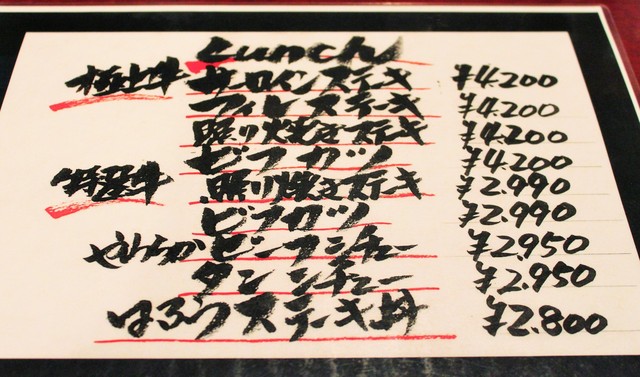 Lunch
極上牛 サーロインステーキ ¥4.200
フィレステーキ ¥4.200
照り焼きステーキ ¥4.200
ビフカツ ¥4.200
特選牛 照り焼きステーキ ¥2.990
ビフカツ ¥2.990
やわらかビーフシチュー ¥2.950
タンシチュー ¥2.950
はぶやステーキ丼 ¥2.800